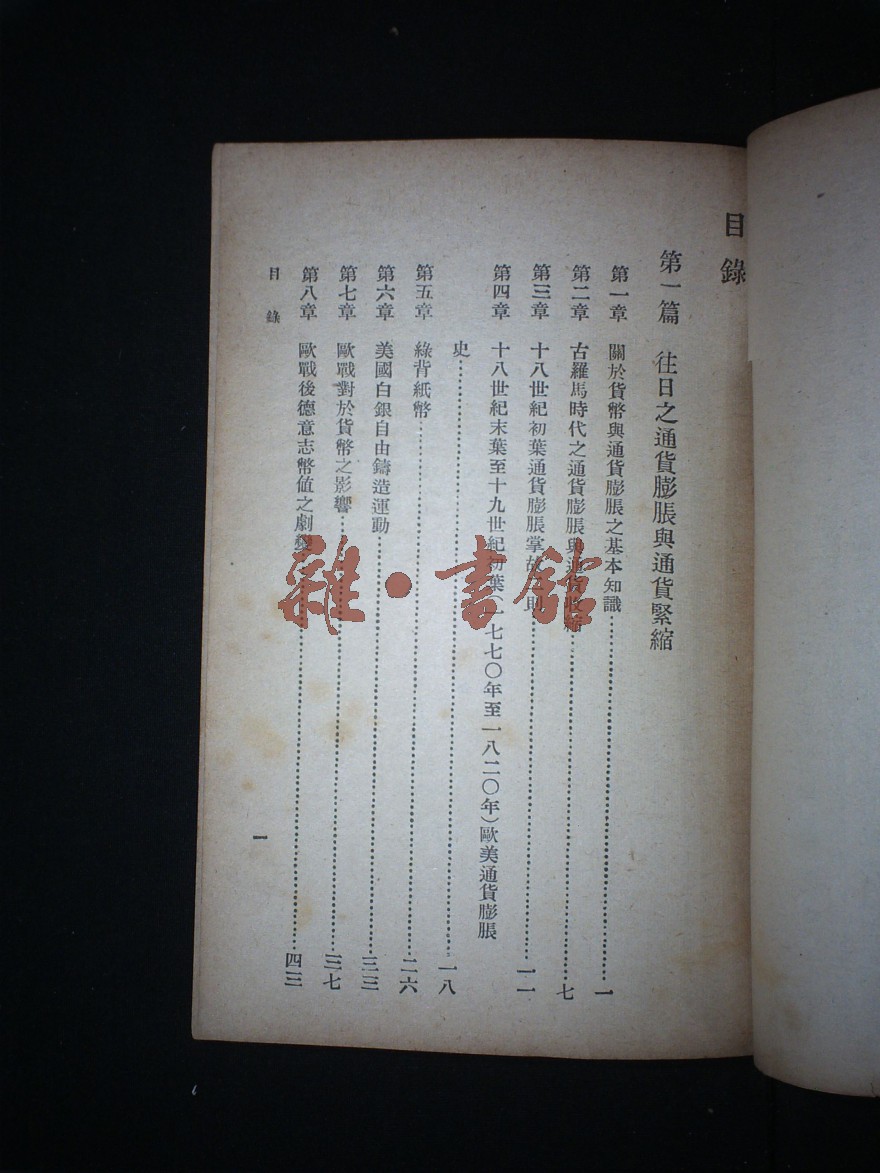 目錄
第一篇 往日之通貨膨脹與通貨緊縮
第一章 關於貨幣與通貨膨脹之基本知識……一
第二章 古羅馬時代之通貨膨脹與通貨收縮……七
第三章 十八世紀初葉通貨膨脹掌故二則……一一
第四章 十八世紀末葉至十九世紀初葉(一七七〇年至一八二〇年)歐美通貨膨脹
史……一八
第五章 綠背紙幣……二六
第六章 美國白銀自由鑄造運動……三三
第七章 歐戰對於貨幣之影響……三七
第八章 歐戰後德意志幣值之劇變……四三
目錄
一
雜·書館